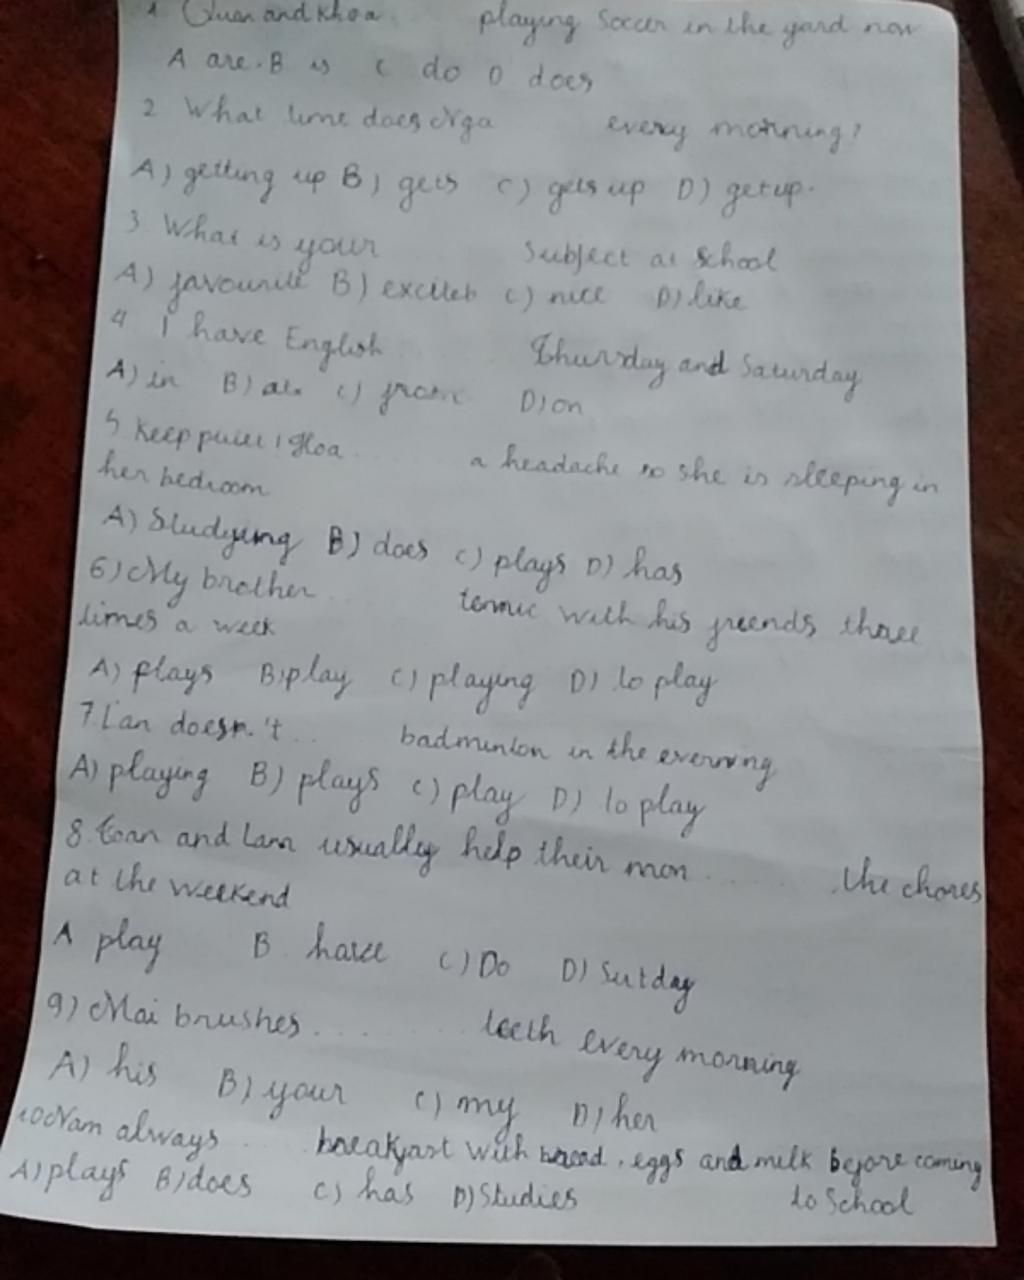 1 Quan and Khoa. playing Soccer in the yard now
A are. B is C do D does
2 What time does Nga every morning?
A) getting up B) gets C) gets up D) get up.
3 What is your Subject at School
A) favourite B) excited C) nice D) like
4 I have English Thursday and Saturday
A) in B) at C) from D) on
5 Keep ! Hoa ....... a headache so she is sleeping in
her bedroom
A) Studying B) does C) plays D) has
6) My brother tennic with his freends three
times a week
A) plays B) play C) playing D) to play
7. Lan doesn't ... badminton in the everning
A) playing B) plays C) play D) to play
8. Toan and Lan usually help their mon ...... the chores
at the weekend
A play B have C) Do D) Sutday
9) Mai brushes ........ teeth every morning
A) his B) your C) my D) her
10 Nam always ... breakfast with bread, eggs and milk before coming
to School
A) plays B) does C) has D) Studies